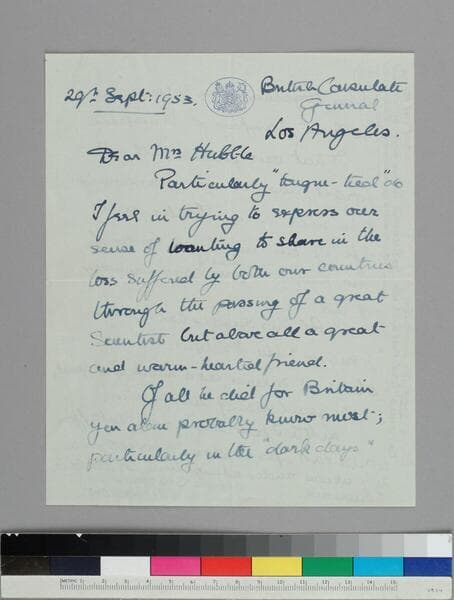 29th Sept: 1953.
British Consulate
General
Los Angeles.
Dear Mrs Hubble
Particularly "tongue-tied" do
I feel in trying to express our
sense of wanting to share in the
loss suffered by both our countries
through the passing of a great
Scientist but above all a great
and warm-hearted friend.
Of all he did for Britain
you alone probably know most;
particularly in the "dark days"
METRIC 1 2 3 4 5 6 7 8 9 10 11 12 13 14 15